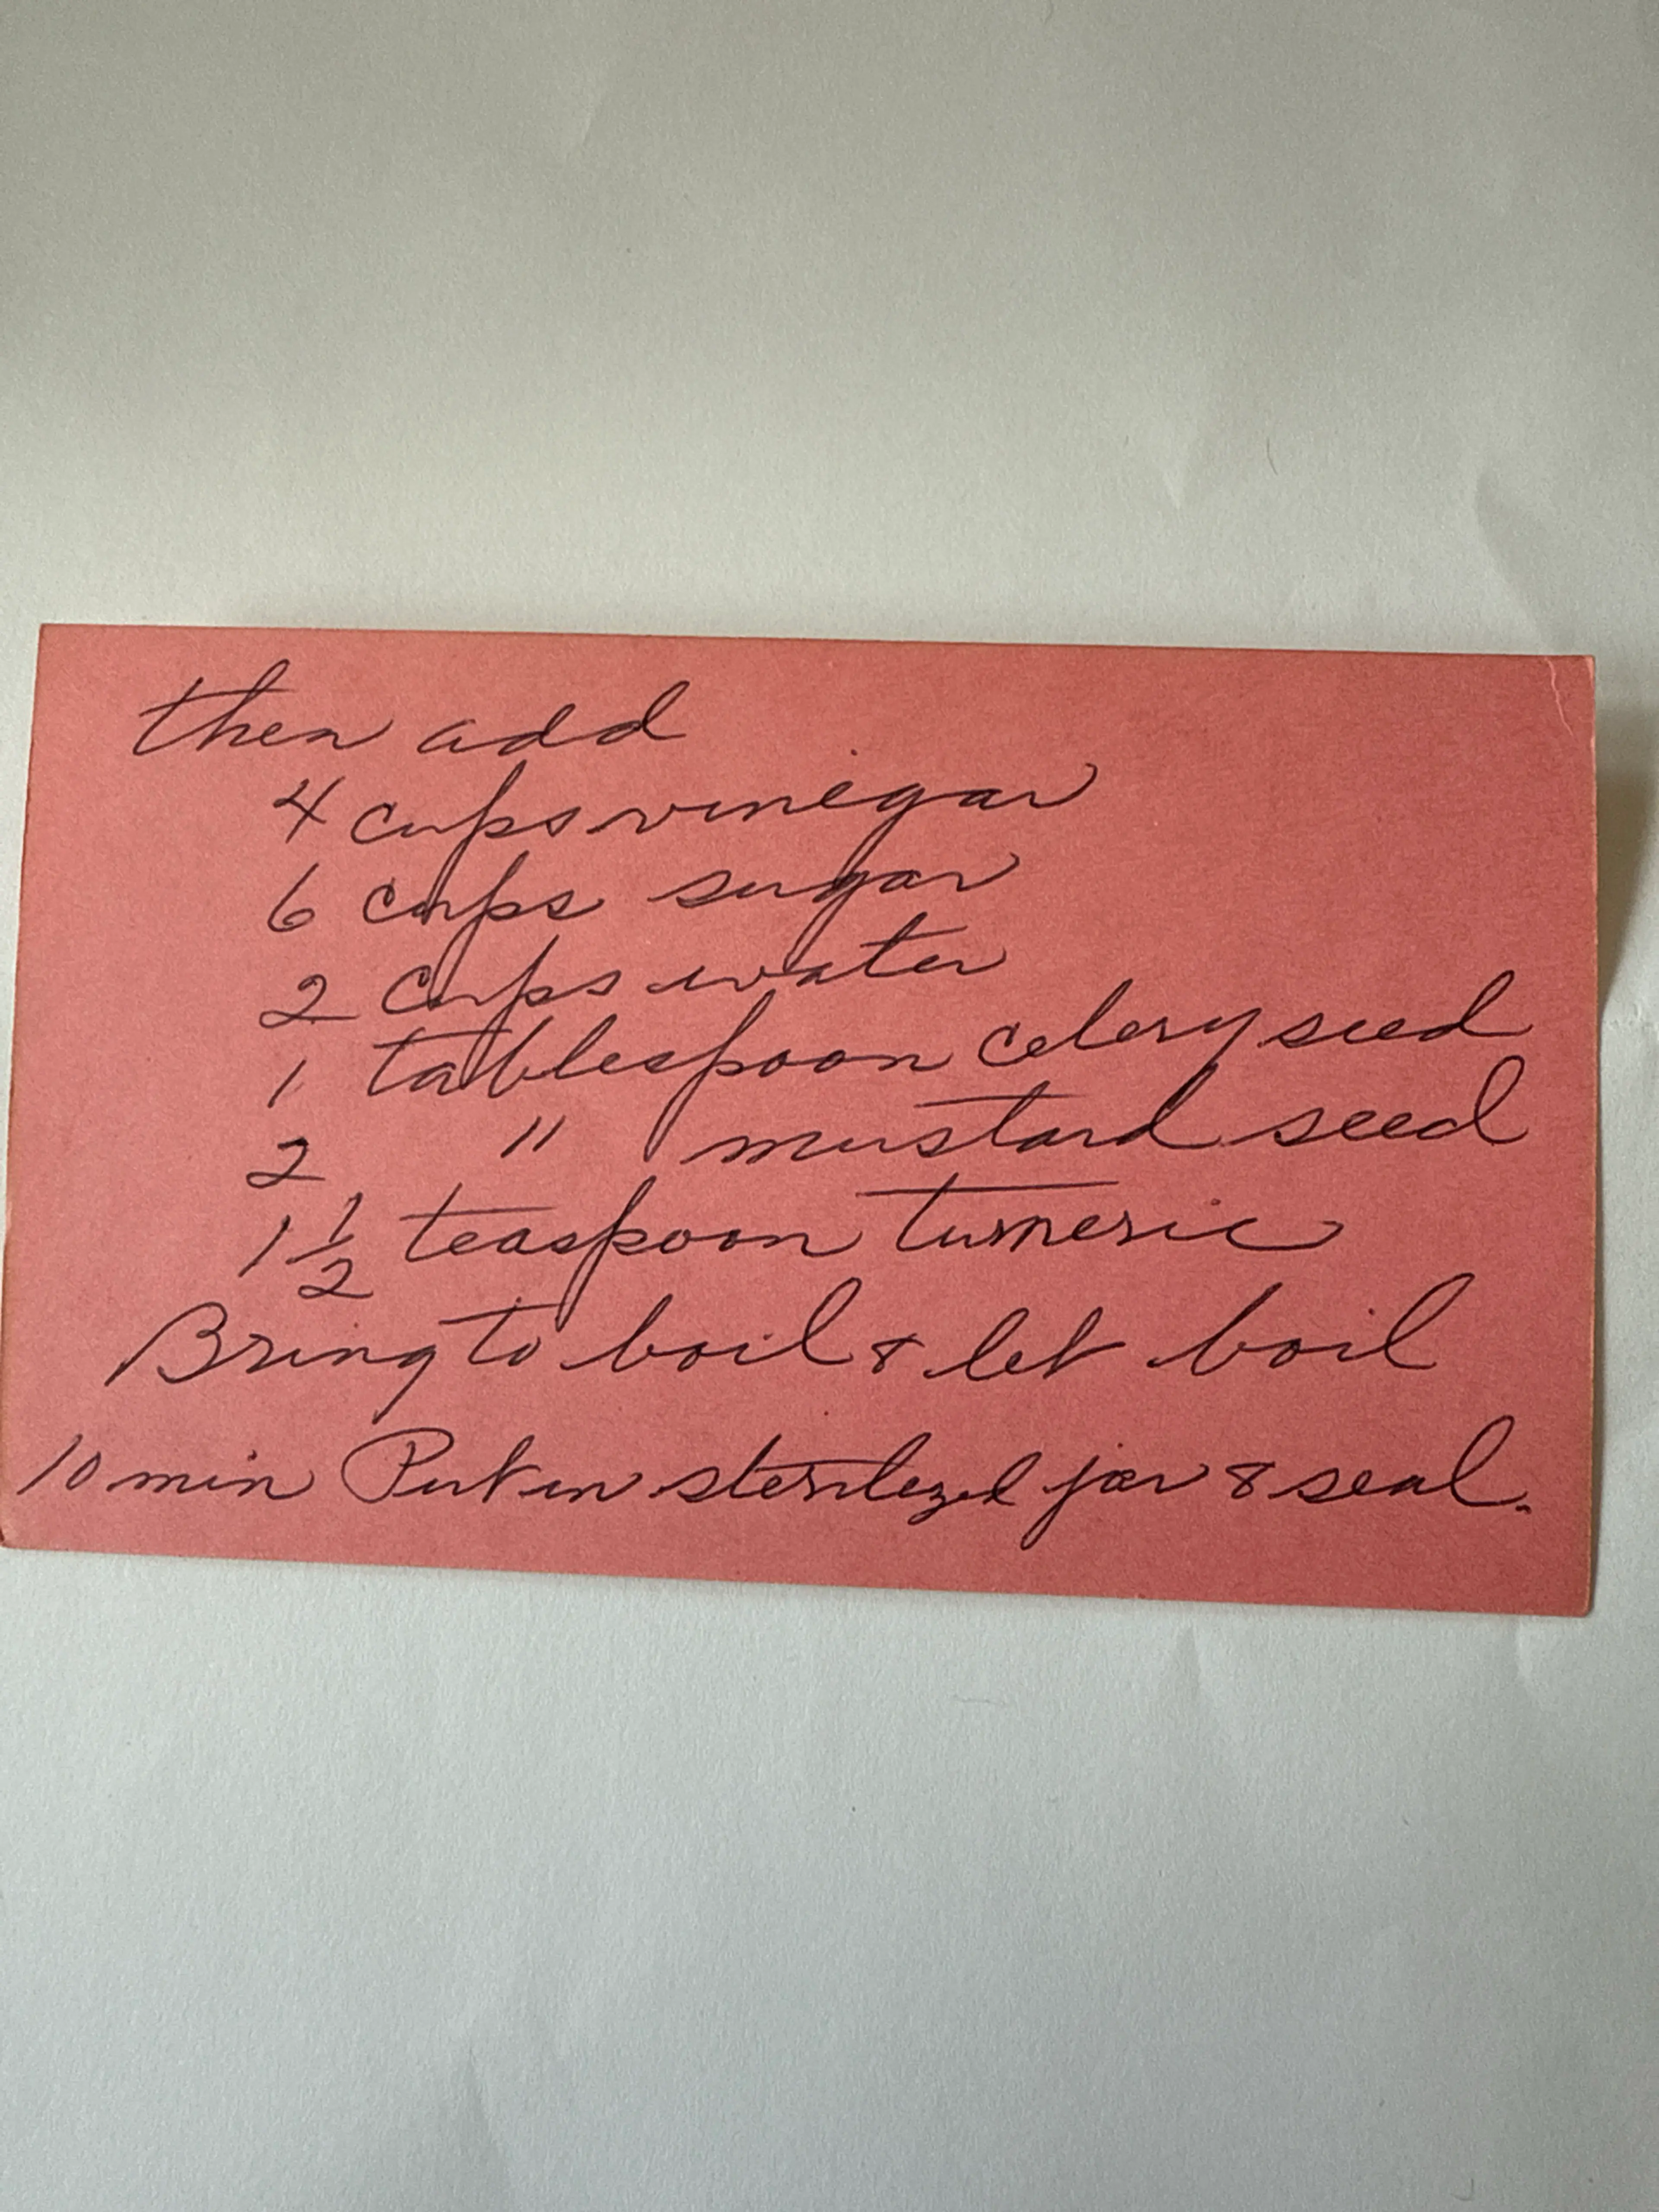 then add
4 cups vinegar
6 cups sugar
2 cups water
1 tablespoon celery seed
2 " mustard seed
1 1/2 teaspoon turmeric
Bring to boil & let boil
10 min Put in sterilezed jar & seal.